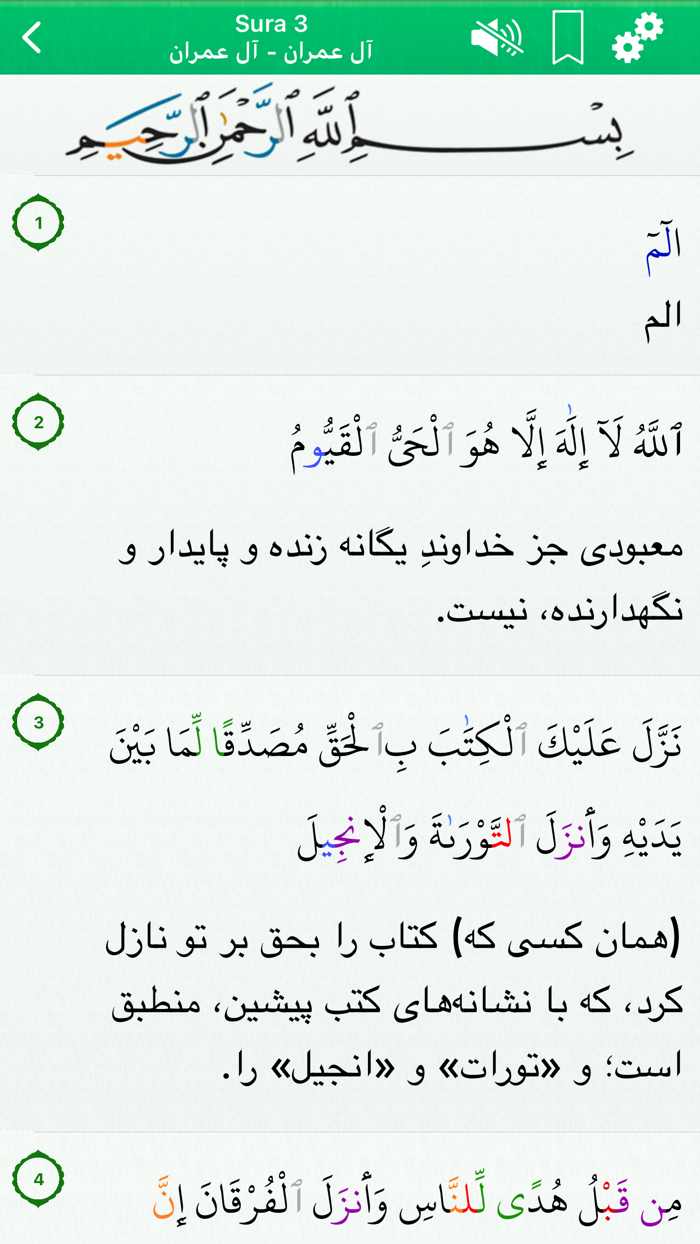 Sura 3
آل عمران - آل عمران
بِسْمِ ٱللَّهِ ٱلرَّحْمَٰنِ ٱلرَّحِيمِ
1
الٓمٓ
الم
2
ٱللَّهُ لَآ إِلَٰهَ إِلَّا هُوَ ٱلْحَىُّ ٱلْقَيُّومُ
معبودی جز خداوندِ یگانه زنده و پایدار و
نگهدارنده، نیست.
3
نَزَّلَ عَلَيْكَ ٱلْكِتَٰبَ بِٱلْحَقِّ مُصَدِّقًا لِّمَا بَيْنَ
يَدَيْهِ وَأَنزَلَ ٱلتَّوْرَىٰةَ وَٱلْإِنجِيلَ
(همان کسی که) کتاب را بحق بر تو نازل
کرد، که با نشانه‌های کتب پیشین، منطبق
است؛ و «تورات» و «انجیل» را.
4
مِن قَبْلُ هُدًى لِّلنَّاسِ وَأَنزَلَ ٱلْفُرْقَانَ إِنَّ